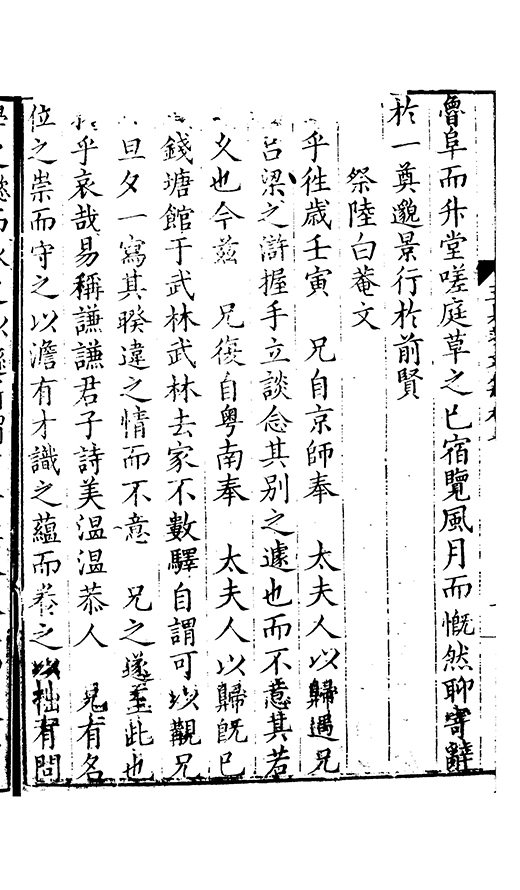 魯阜而升堂嗟庭草之已宿覽風月而慨然聊寄辭
於一奠邈景行於前賢
祭陸白菴文
乎徃歳壬寅 兄自京師奉 太夫人以歸遇兄
呂梁之滸握手立談念其别之遽也而不意其若
久也今兹 兄復自粤南奉 太夫人以歸旣已
錢塘館于武林武林去家不數驛自謂可以觀兄
旦夕一寫其暌違之情而不意 兄之遂至此也
乎哀哉易稱謙謙君子詩美温温恭人 兄有名
位之崇而守之以澹有才識之蘊而養之以拙有問